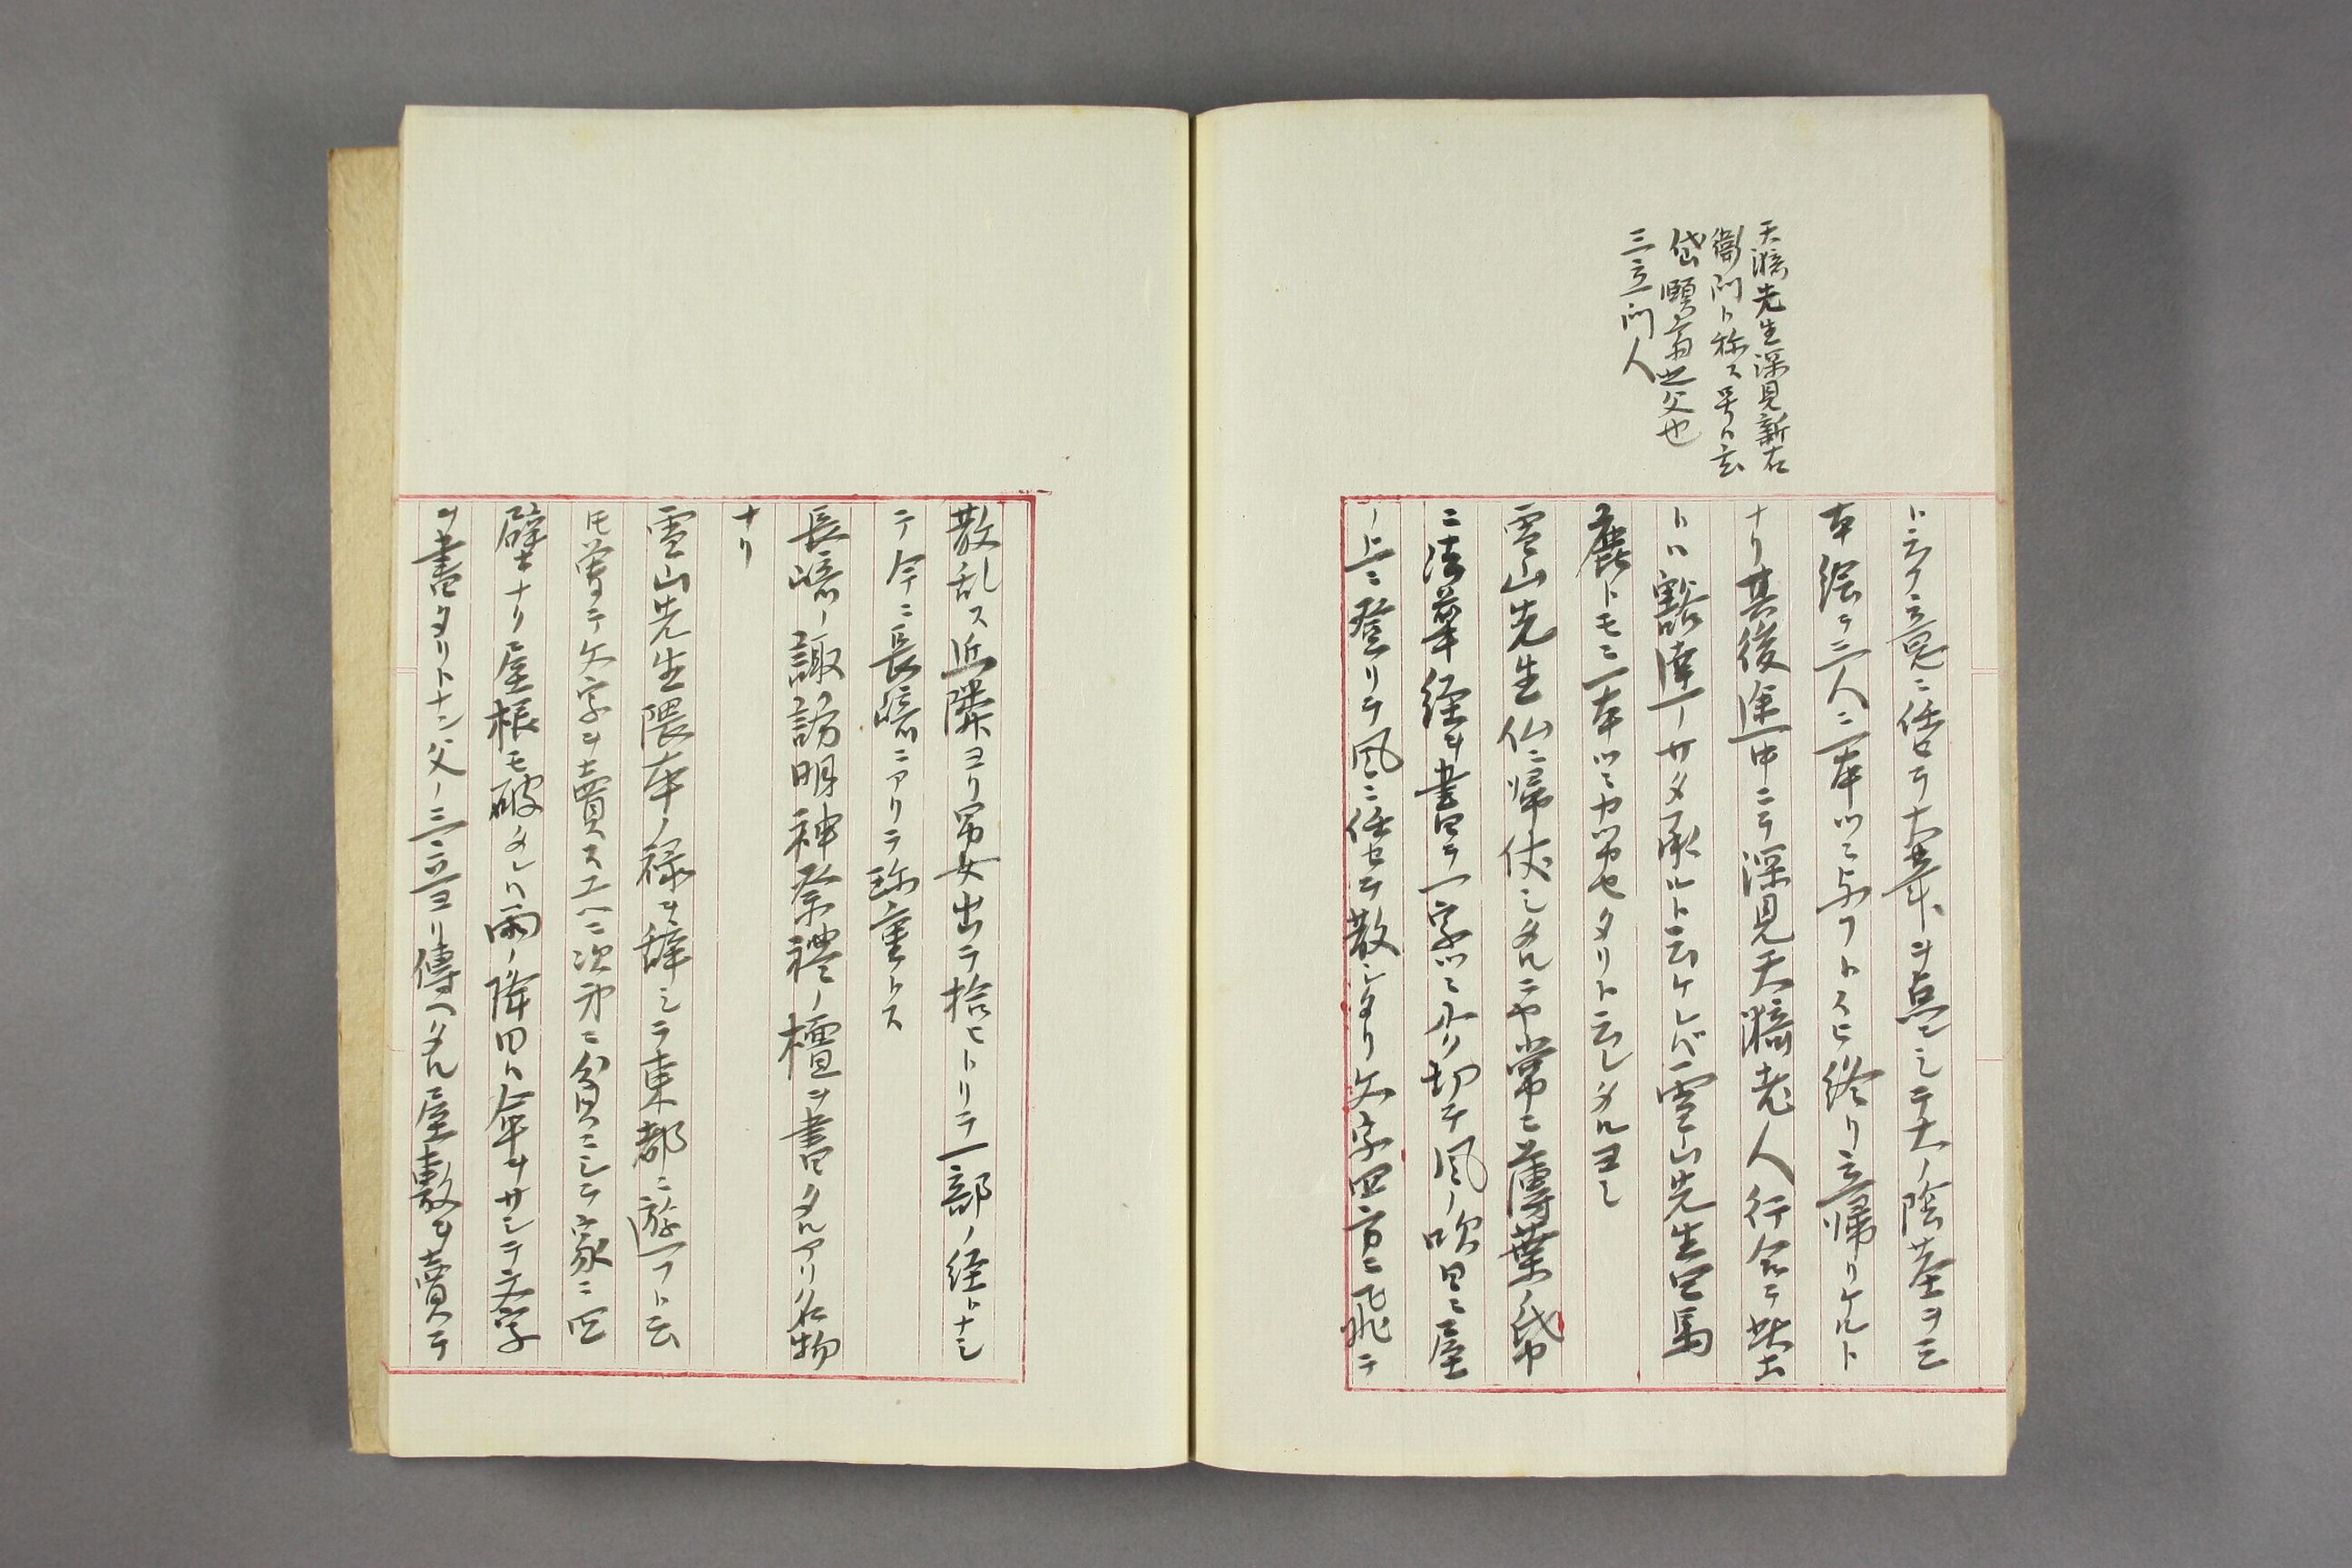 天漪先生深見新右
衛門ト称ス号ト云
岱 頤齋之父也
三立門人
トテ意ニ任セテ大筆ヲ点シテ大ノ陰莖ヲ三
本絵テ三人ニ一本ツヽ与フトスヒ終リ立帰リケルト
ナリ其後途中ニテ深見天漪老人行合テ
トハ豁達ノサタ承ルト云ケレバ雪山先生馬
鹿トモニ一本ツヽカツカセタリト云レタルヨシ
雪山先生仏ニ帰依シタルニヤ常ニ薄葉ノ紙
ニ法華経ヲ書テ一字ツヽニ切テ風ノ吹日ニ屋
ノ上ニ登リテ風ニ任セテ散シタリ文字四方ニ飛テ
散乱ス近隣ヨリ男女出テ拾ヒトリテ一部ノ経トナシ
テ今ニ長崎ニアリテ珍重トス
長崎ノ諏訪明神祭禮ノ檀ヲ書タルアリ名物
ナリ
雪山先生隈本ノ禄ヲ辞シテ東都ニ遊フト云
𪜈曽テ文字ヲ賣スユヘニ次第ニ貧ニシテ家ニ四
壁ナリ屋根モ破タレハ雨ノ降日ハ傘ヲサシテ文字
ヲ書タリトナン父ノ三立ヨリ傳ヘタル屋敷ヲ賣テ